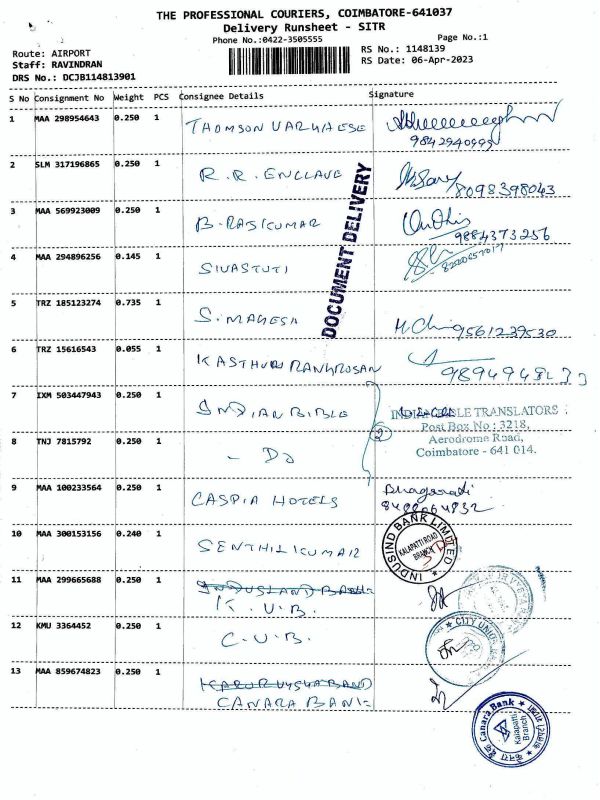 THE PROFESSIONAL COURIERS, COIMBATORE-641037
Delivery Runsheet - SITR
Phone No.:0422-3505555
Page No.:1
Route: AIRPORT
RS No.: 1148139
Staff: RAVINDRAN
RS Date: 06-Apr-2023
DRS No.: DCJB114813901
S No Consignment No Weight PCS Consignee Details Signature
1 MAA 298954643 0.250 1 THOMSON VARGHESE
2 SLM 317196865 0.250 1 R.R. ENCLAVE 8098398043
3 MAA 569923009 0.250 1 B. RAJKUMAR 9884373256
4 MAA 294896256 0.145 1 SIVASTUTI
5 TRZ 185123274 0.735 1 S. MAHESH 9561239530
6 TRZ 15616543 0.055 1
DOCUMENT DELIVERY
7 IXM 503447943 0.250 1 INDIAN BIBLE
INDIAN BIBLE TRANSLATORS
Post Box No : 3218,
8 TNJ 7815792 0.250 1 - DO 2
Aerodrome Road,
Coimbatore - 641 014.
9 MAA 100233564 0.250 1 CASPIA HOTELS
10 MAA 300153156 0.240 1 SENTHILKUMAR
INDUSIND BANK LIMITED
KALAPATTI ROAD
BRANCH
11 MAA 299665688 0.250 1
K.V.B.
12 KMU 3364452 0.250 1 C.U.B.
CITY UNION BANK
13 MAA 859674823 0.250 1 KARUR VYSYA BANK
CANARA BANK
Canara Bank
Kalapatti
Branch